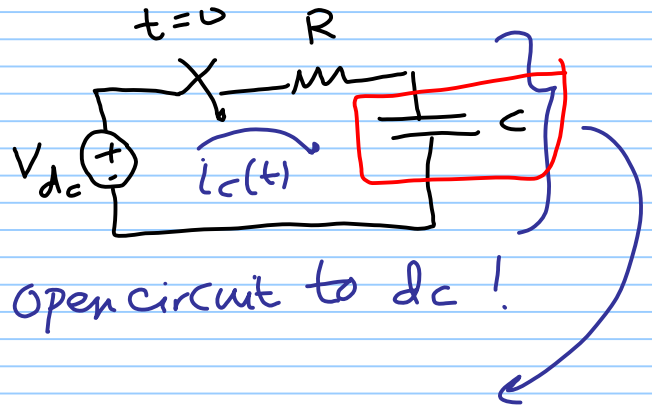 t=0
R
+
-
V dc
i c(t)
C
open circuit to dc !